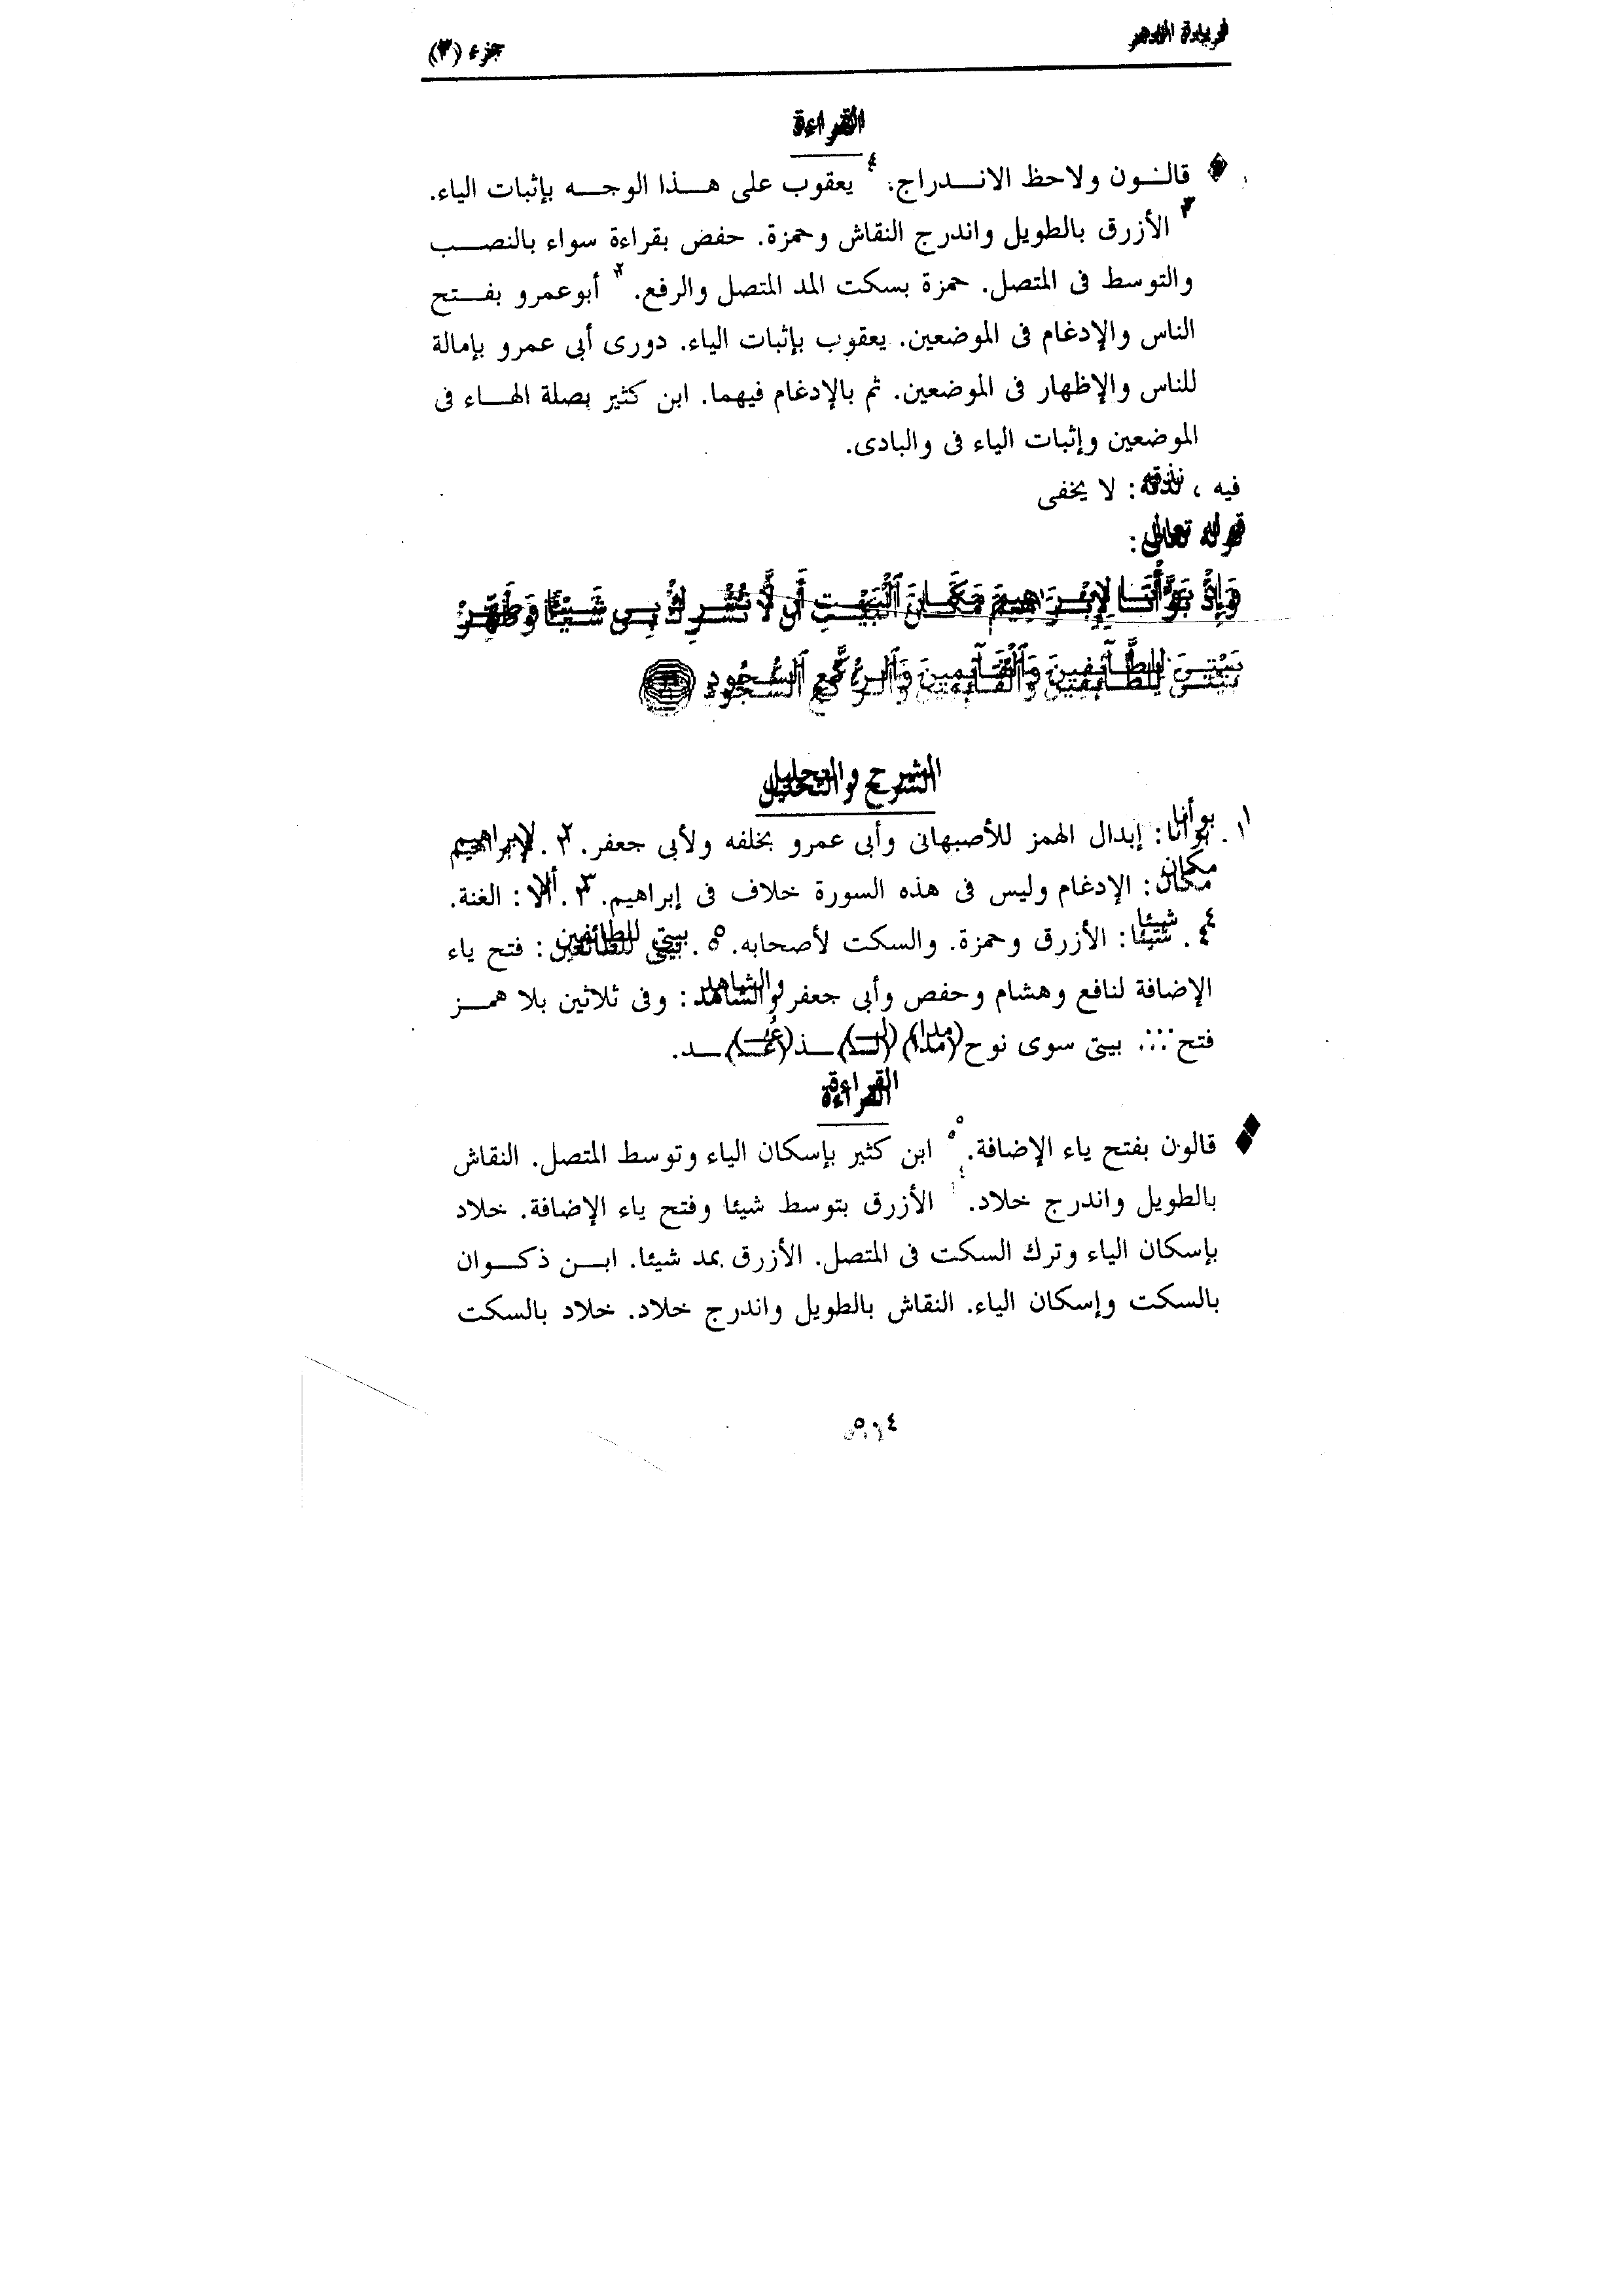 فريدة الدهر
جزء (٣)
القراءة
قالــون ولاحظ الانــدراج. ٤ يعقوب على هــذا الوجــه بإثبات الياء.
٣ الأزرق بالطويل واندرج النقاش وحمزة. حفض بقراءة سواء بالنصــب
والتوسط فى المتصل. حمزة بسكت المد المتصل والرفع. ٢ أبوعمرو بفــتح
الناس والإدغام فى الموضعين. يعقوب بإثبات الياء. دورى أبى عمرو بإمالة
للناس والإظهار فى الموضعين. ثم بالإدغام فيهما. ابن كثير بصلة الهــاء فى
الموضعين وإثبات الياء فى والبادى.
فيه ، نذقه: لا يخفى
قوله تعالى:
وَإِذْ بَوَّأْنَا لِإِبْرَٰهِيمَ مَكَانَ ٱلْبَيْتِ أَن لَّا تُشْرِكْ بِى شَيْـًٔا وَطَهِّرْ
بَيْتِىَ لِلطَّآئِفِينَ وَٱلْقَآئِمِينَ وَٱلرُّكَّعِ ٱلسُّجُودِ
الشرح والتحليل
١. بوأنا: إبدال الهمز للأصبهانى وأبى عمرو بخلفه ولأبى جعفر. ٢. لإبراهيم
مكان: الإدغام وليس فى هذه السورة خلاف فى إبراهيم. ٣. ألا: الغنة.
٤. شيئا: الأزرق وحمزة. والسكت لأصحابه. ٥. بيتى للطائفين: فتح ياء
الإضافة لنافع وهشام وحفص وأبى جعفر والشاهد: وفى ثلاثين بلا همــز
فتح ∴ بيتى سوى نوح (مدا) (لــ)ــذ (عُــ)ــد.
القراءة
قالون بفتح ياء الإضافة. ٥ ابن كثير بإسكان الياء وتوسط المتصل. النقاش
بالطويل واندرج خلاد. ٤ الأزرق بتوسط شيئا وفتح ياء الإضافة. خلاد
بإسكان الياء وترك السكت فى المتصل. الأزرق بمد شيئا. ابــن ذكــوان
بالسكت وإسكان الياء. النقاش بالطويل واندرج خلاد. خلاد بالسكت
٥٠٤